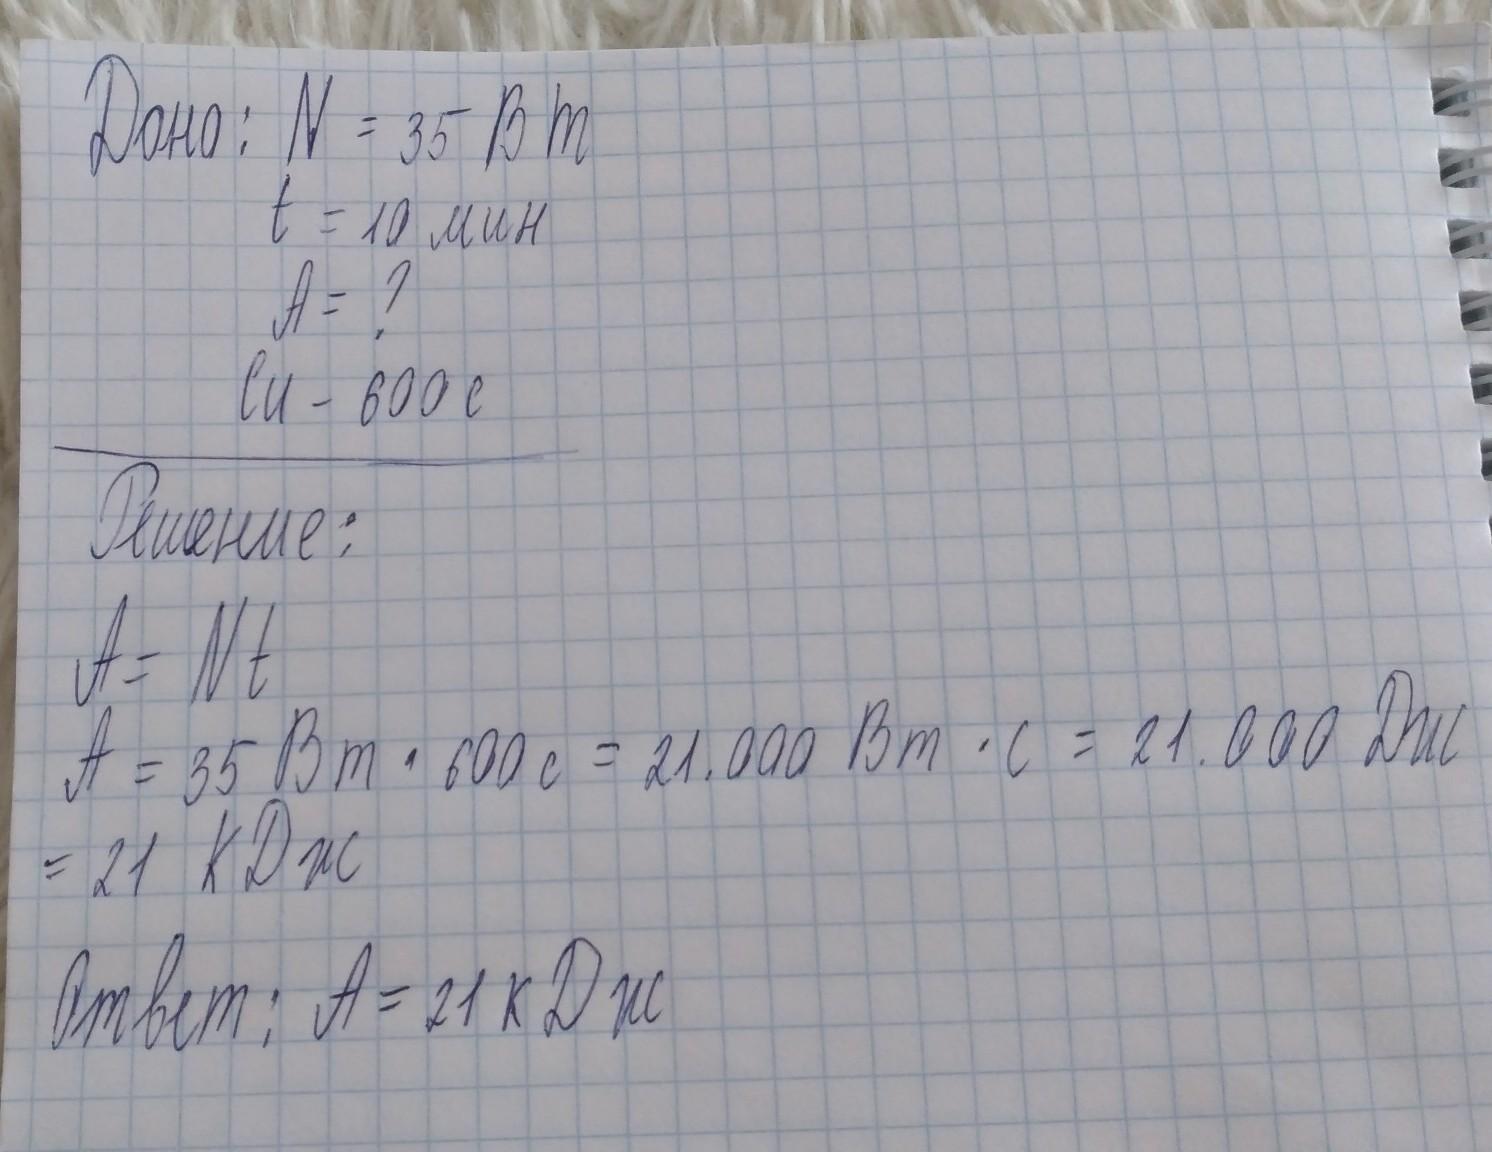 Дано: N = 35 Вт
t = 10 мин
A = ?
Си - 600 с
Решение:
A = Nt
A = 35 Вт · 600 с = 21.000 Вт · с = 21.000 Дж
= 21 кДж
Ответ: A = 21 кДж